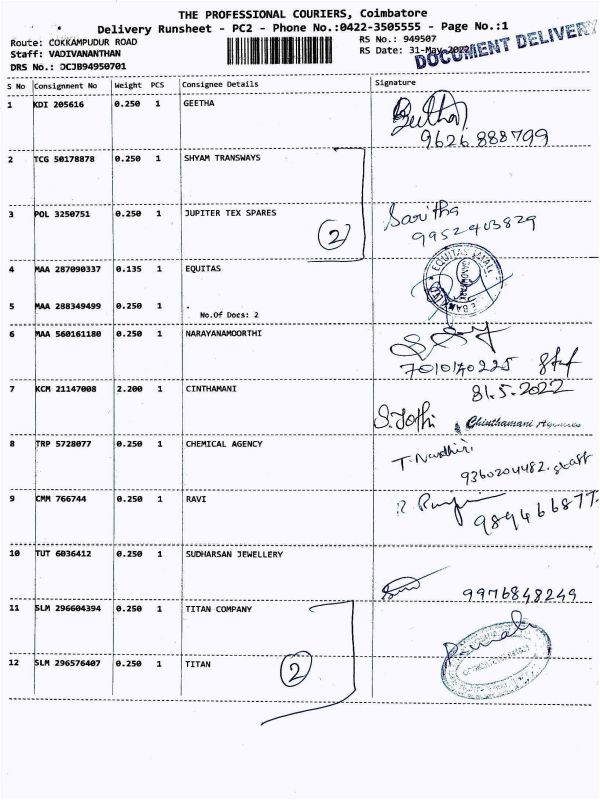 THE PROFESSIONAL COURIERS, Coimbatore
Delivery Runsheet - PC2 - Phone No.:0422-3505555 - Page No.:1
Route: COKKAMPUDUR ROAD
RS No.: 949507
Staff: VADIVANANTHAN
RS Date: 31-May-2022
DOCUMENT DELIVERY
DRS No.: DCJB94950701
S No Consignment No Weight PCS Consignee Details Signature
1 KDI 205616 0.250 1 GEETHA
Geetha
9626888799
2 TCG 50178878 0.250 1 SHYAM TRANSWAYS
3 POL 3250751 0.250 1 JUPITER TEX SPARES
2
Saritha
9952403829
4 MAA 287090337 0.135 1 EQUITAS
EQUITAS SMALL
5 MAA 288349499 0.250 1 .
No.Of Docs: 2
6 MAA 560161180 0.250 1 NARAYANAMOORTHI
7010170225 Staf
7 KCM 21147008 2.200 1 CINTHAMANI
31.5.2022
S. Jothi Chinthamani Agencies
8 TRP 5728077 0.250 1 CHEMICAL AGENCY
9360204482. staff
9 CMM 766744 0.250 1 RAVI
10 TUT 6036412 0.250 1 SUDHARSAN JEWELLERY
9976848249
11 SLM 296604394 0.250 1 TITAN COMPANY
12 SLM 296576407 0.250 1 TITAN
2